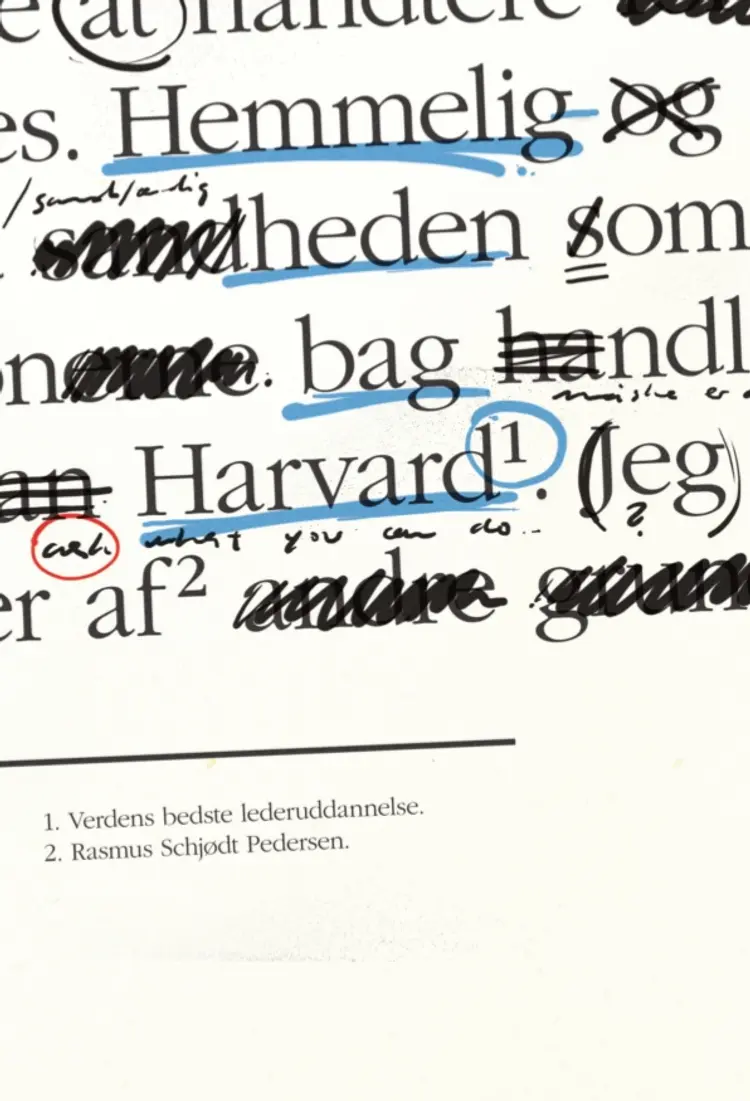 e at håndtere
es. Hemmelig og
sandheden som
bag handl
måske er
an Harvard¹. (Jeg)
ask what you can do...
?
er af² andre grun
1. Verdens bedste lederuddannelse.
2. Rasmus Schjødt Pedersen.